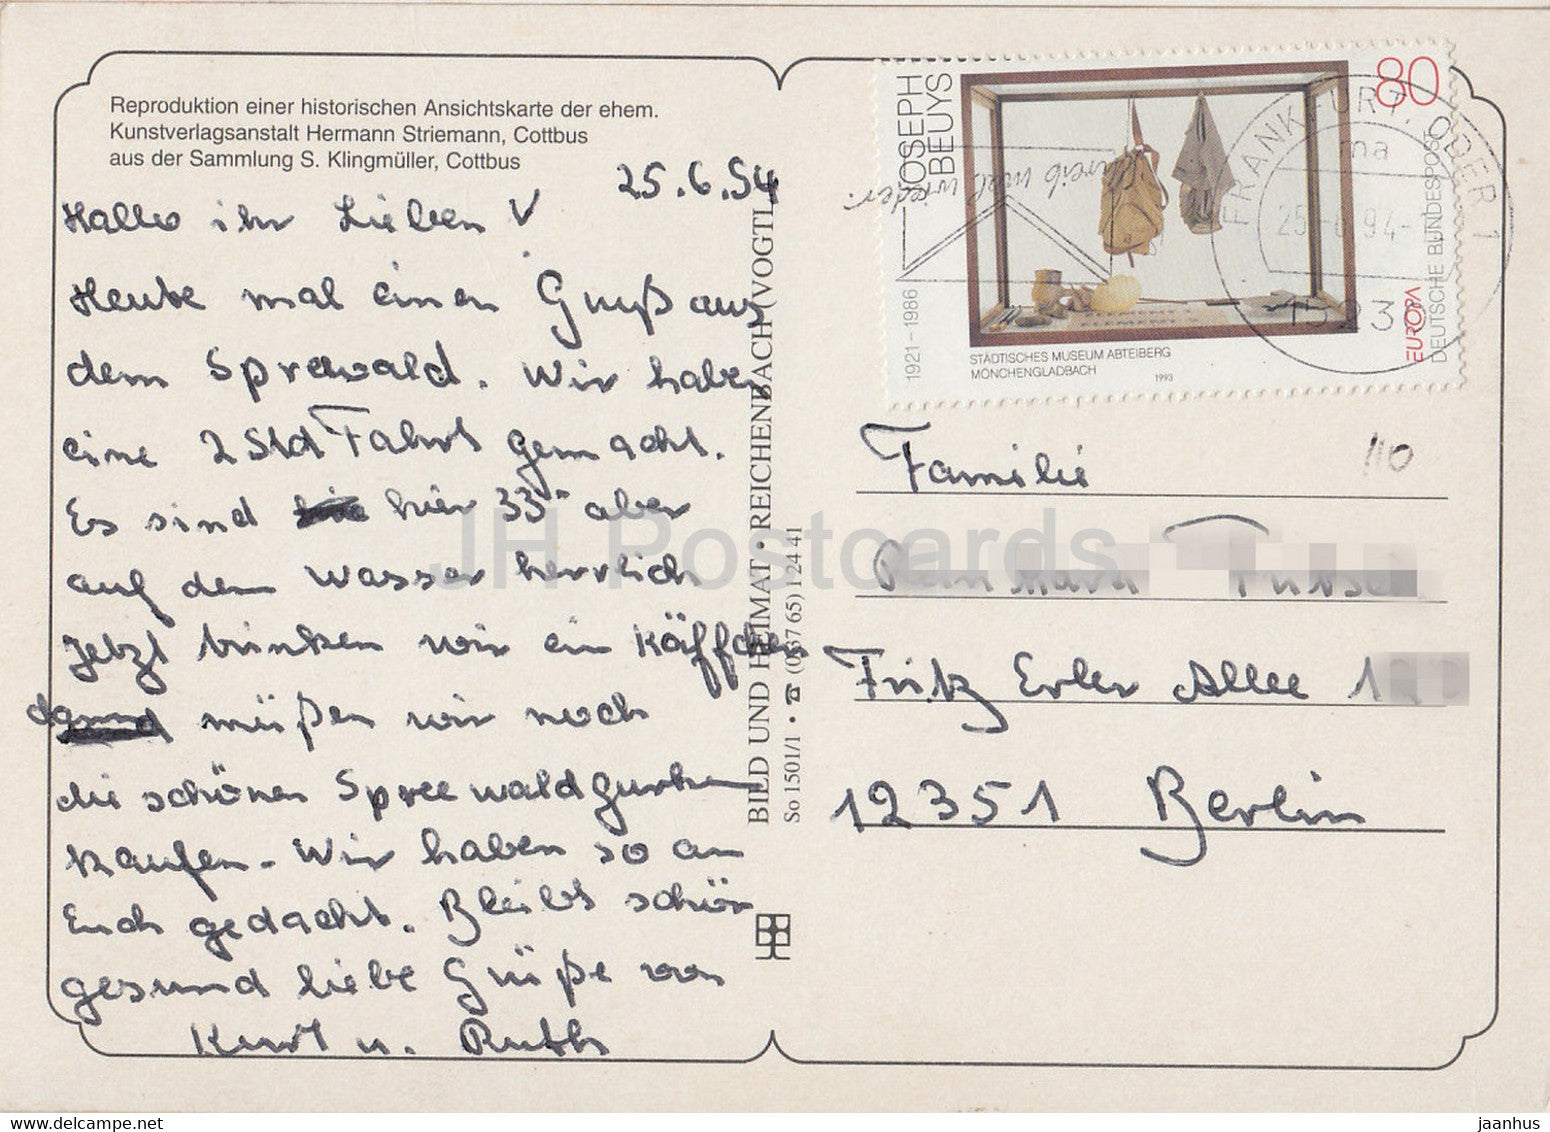 Reproduktion einer historischen Ansichtskarte der ehem.
Kunstverlagsanstalt Hermann Striemann, Cottbus
aus der Sammlung S. Klingmüller, Cottbus
25.6.94
Hallo ihr Lieben
Heute mal einen Gruß aus
dem Sprewald. Wir haben
eine 2 Std Fahrt gemacht.
Es sind hier 33° aber
auf dem Wasser herrlich
jetzt trinken wir ein Käffchen
müßen wir noch
die schönen Spreewaldgurken
kaufen. Wir haben so an
Euch gedacht. Bleibt schön
gesund liebe Grüße von
Kurt u. Ruth
BILD UND HEIMAT • REICHENBACH (VOGTL
So 1501/1 • ☎ (03765) 12441
JOSEPH
BEUYS
1921–1986
80
STÄDTISCHES MUSEUM ABTEIBERG
MÖNCHENGLADBACH
1993
EUROPA
DEUTSCHE BUNDESPOST
Schreib mal wieder.
FRANKFURT, ODER 1
ma
25.-6.94-
1523
110
Familie
Fritz Erler Allee 1
12351 Berlin
JH Postcards
www.delcampe.net
jaanhus